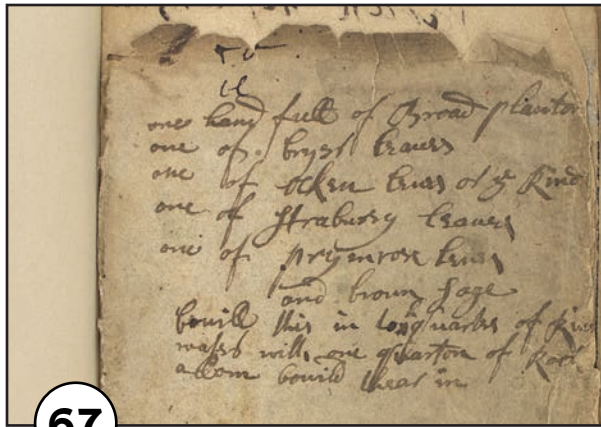 one hand full of Broad planton
one of bryer leaues
one of ocken leues of ye kind
one of straburey leaues
one of prymrose leues
and brown sage
bouill this in quarts of
water with one quarton of
allom bouild theas in
67